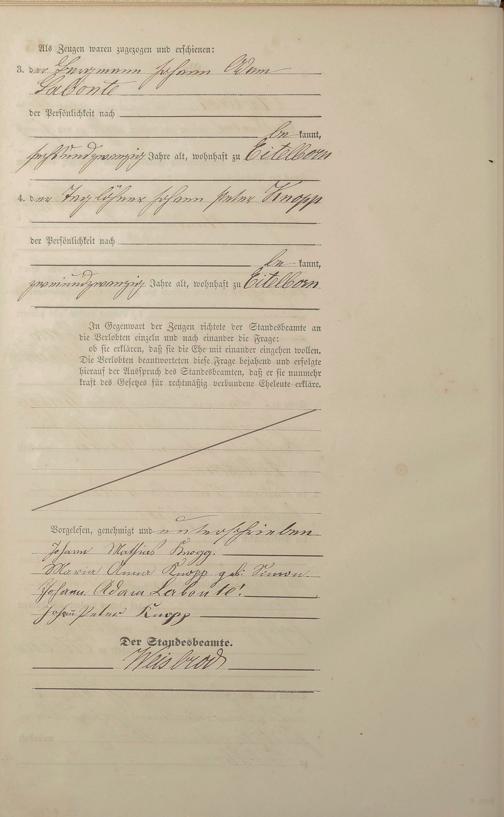 Als Zeugen waren zugezogen und erschienen:
3. der Bergmann Johann Adam
Labonte
der Persönlichkeit nach
be kannt,
sechsundzwanzig Jahre alt, wohnhaft zu Eitelborn
4. der Taglöhner Johann Peter Knopp
der Persönlichkeit nach
be kannt,
zweiundzwanzig Jahre alt, wohnhaft zu Eitelborn
In Gegenwart der Zeugen richtete der Standesbeamte an
die Verlobten einzeln und nach einander die Frage:
ob sie erklären, daß sie die Ehe mit einander eingehen wollen.
Die Verlobten beantworteten diese Frage bejahend und erfolgte
hierauf der Ausspruch des Standesbeamten, daß er sie nunmehr
kraft des Gesetzes für rechtmäßig verbundene Eheleute erkläre.
Vorgelesen, genehmigt und unterschrieben
Johann Mathias Knopp.
Maria Anna Knopp geb. Simon.
Johann Adam Labonte!
Johann Peter Knopp
Der Standesbeamte.
Weisbrod